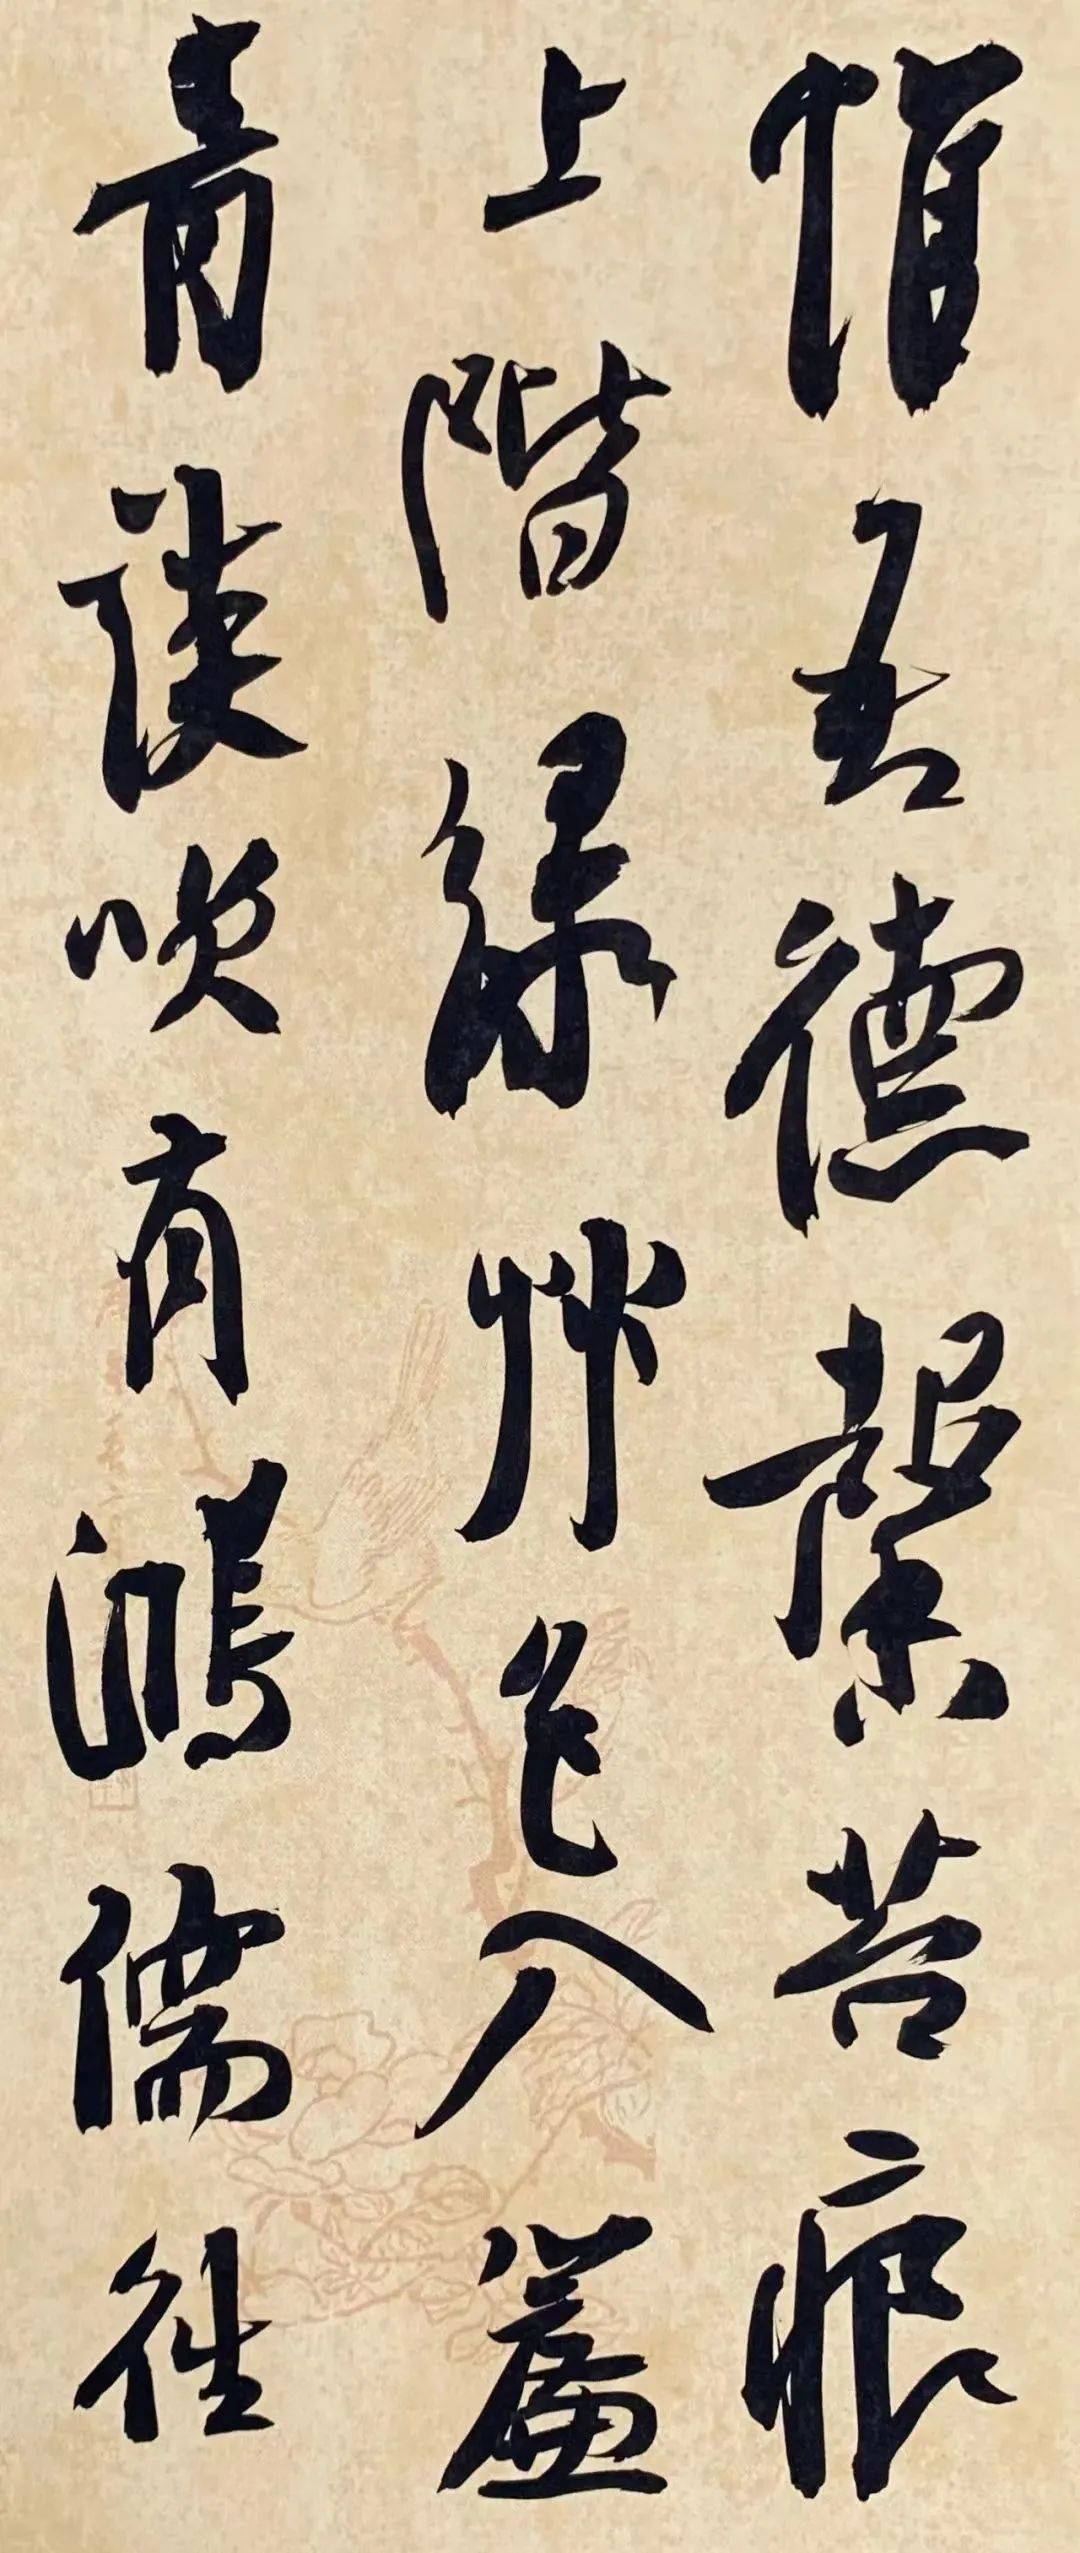 惟吾德馨苔痕
上階綠艸色入簾
青談唉有鴻儒往